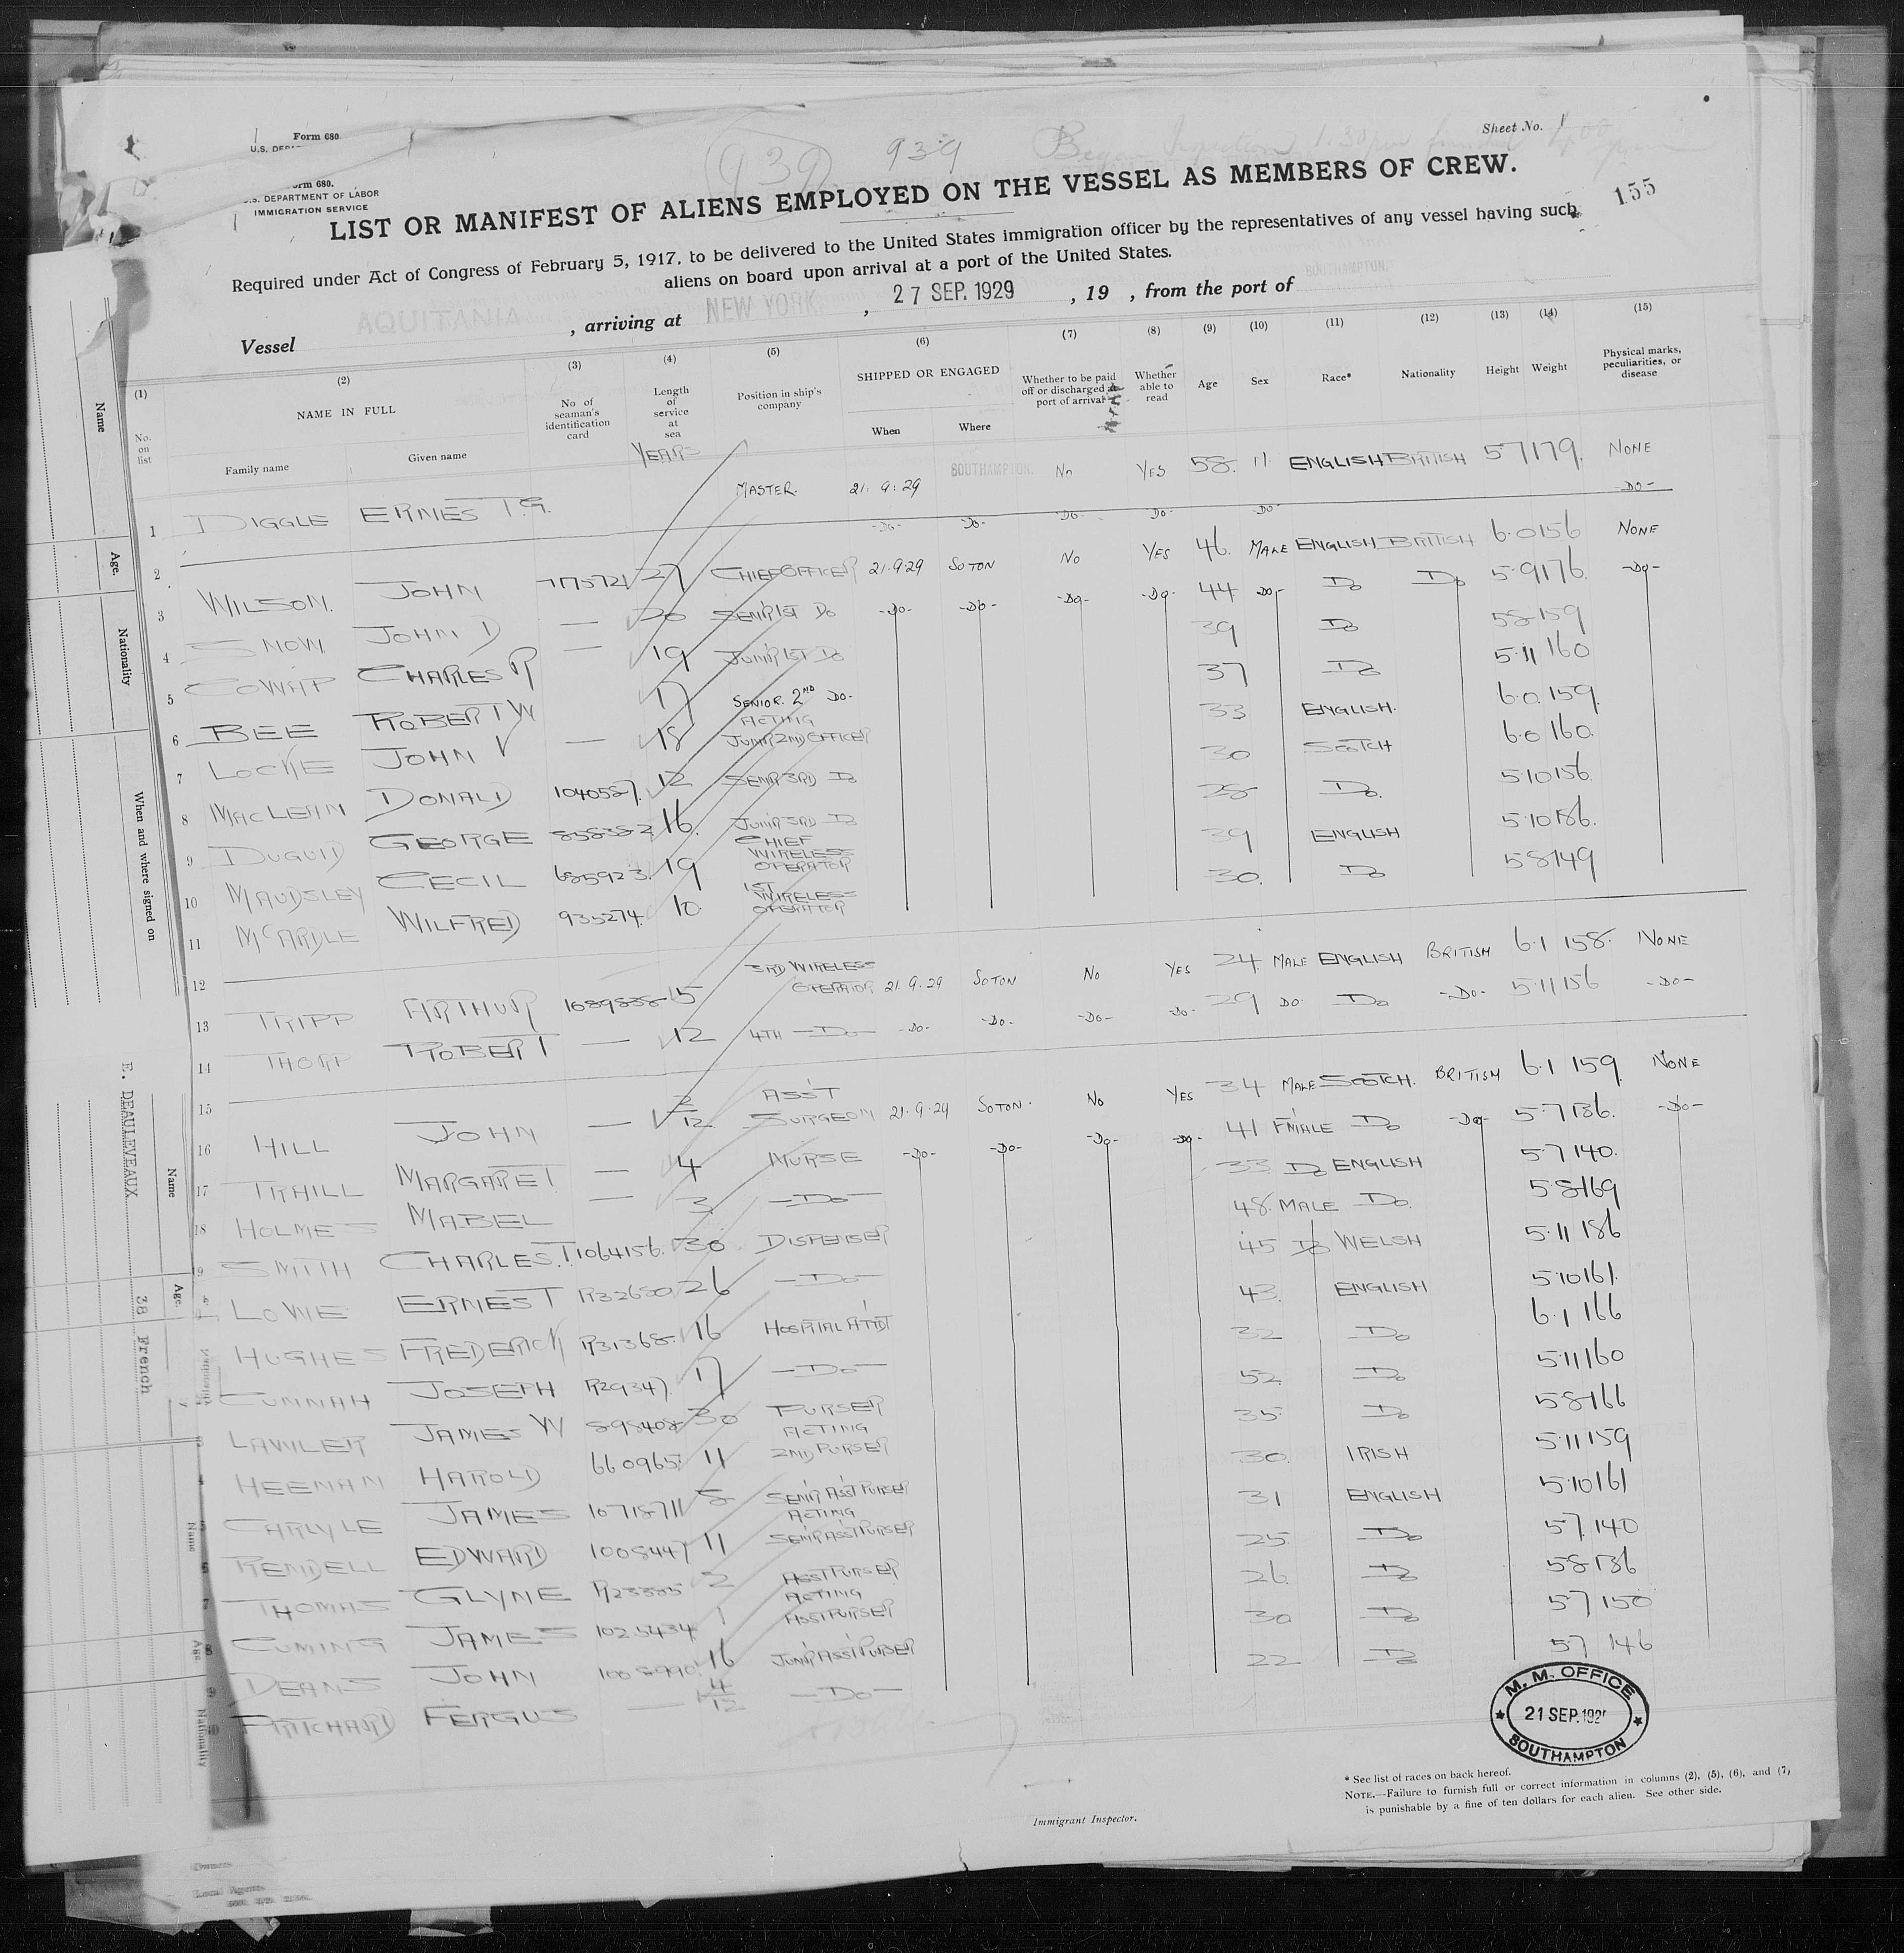 Form 680.
U.S. DEPA
Form 680.
U.S. DEPARTMENT OF LABOR
IMMIGRATION SERVICE
939 939 Began Inspection 1.30 pm
Sheet No. 1
155
LIST OR MANIFEST OF ALIENS EMPLOYED ON THE VESSEL AS MEMBERS OF CREW.
Required under Act of Congress of February 5, 1917, to be delivered to the United States immigration officer by the representatives of any vessel having such
aliens on board upon arrival at a port of the United States.
Vessel AQUITANIA, arriving at NEW YORK, 27 SEP. 1929, 19 , from the port of SOUTHAMPTON.
(1) (2) (3) (4) (5) (6) (7) (8) (9) (10) (11) (12) (13) (14) (15)
No. on list NAME IN FULL Family name Given name No of seaman's identification card Length of service at sea YEARS Position in ship's company SHIPPED OR ENGAGED When Where Whether to be paid off or discharged at port of arrival Whether able to read Age Sex Race* Nationality Height Weight Physical marks, peculiarities, or disease
1 DIGGLE ERNEST.G. MASTER. 21.9.29 SOUTHAMPTON. No YES 58. 11 ENGLISH BRITISH 57 179. NONE
-Do- Do- -Do- -Do- -Do- -Do-
2 WILSON. JOHN 775721 27 CHIEF OFFICER 21.9.29 SOTON No YES 46. MALE ENGLISH BRITISH 6.0 156 NONE
3 SNOW. JOHN D — 20 SENR 1ST DO -Do- -Do- -Do- -Do- 44 Do- Do Do 5.9 176. -Do-
4 COWAP CHARLES R — 19 JUNR 1ST Do 39 Do 58 159
5 BEE ROBERT W 17 SENIOR. 2ND DO- 37 Do 5.11 160
6 LOCKE JOHN V — 18 ACTING JUNR 2ND OFFICER 33 ENGLISH. 6.0 159.
7 MACLEAN DONALD 1040587. 12 SENR 3RD Do 30 SCOTCH 6.0 160.
8 DUGUID GEORGE 858382 16. JUNR 3RD Do 28 Do. 5.10 156.
9 MAUDSLEY CECIL 685923. 19 CHIEF WIRELESS OPERATOR 39 ENGLISH 5.10 186.
10 MCARDLE WILFRED 935274. 10. 1ST WIRELESS OPERATOR 30. Do 58 149
11
12 TRIPP ARTHUR 1089838 15 3RD WIRELESS OPERATOR 21.9.29 SOTON No YES 24. MALE ENGLISH BRITISH 6.1 158. NONE
13 THORP ROBERT — 12 4TH —Do— -Do- -Do- -Do- -Do- 29 DO. Do -Do- 5.11 156 -Do-
14
15 HILL JOHN — 2/12 ASS'T SURGEON 21.9.29 SOTON. No YES 34 MALE SCOTCH. BRITISH 6.1 159. NONE
16 TRAILL MARGARET — 4 NURSE -Do- -Do- -Do- -Do- 41 F'MALE Do -Do- 5.7 136. -Do-
17 HOLMES MABEL — 3 —Do— 33 Do ENGLISH 5.7 140.
18 SMITH CHARLES.T. 1064156. 30 DISPENSER 48. MALE Do. 5.8 169
9 LOWE ERNEST R32680 26 —Do— 45 Do WELSH 5.11 186
HUGHES FREDERICK R31368. 16 HOSPITAL ATT'DT 43. ENGLISH 5.10 161.
CUNNAH JOSEPH R29347. 17 —Do— 32 Do 6.1 166
LAWLER JAMES W 898408 30 PURSER 52. Do 5.11 160
HEENAN HAROLD 660965 11 ACTING 2ND PURSER 35. Do 58 166
CARLYLE JAMES 1071871 8 SENR ASST PURSER 30. IRISH 5.11 159
RENDELL EDWARD 1008447 11 ACTING SENR ASST PURSER 31 ENGLISH 5.10 161
7 THOMAS GLYNE R23385 2 ASST PURSER 25. Do 57. 140
8 CUMING JAMES 1025434 1 ACTING ASST PURSER 26. Do 58 136
DEANS JOHN 1008990. 16 JUNR ASST PURSER 30 Do 57 150
PRITCHARD FERGUS — 4/12 —Do— 22 Do 57 146
M. M. OFFICE
21 SEP. 192
SOUTHAMPTON
* See list of races on back hereof.
NOTE.—Failure to furnish full or correct information in columns (2), (5), (6), and (7)
is punishable by a fine of ten dollars for each alien. See other side.
Immigrant Inspector.
Name
Age.
Nationality
When and where signed on
E. DEAULEVEAUX
Name
Age.
38 French
Name
Age
Nationality
Owners
Local Agents